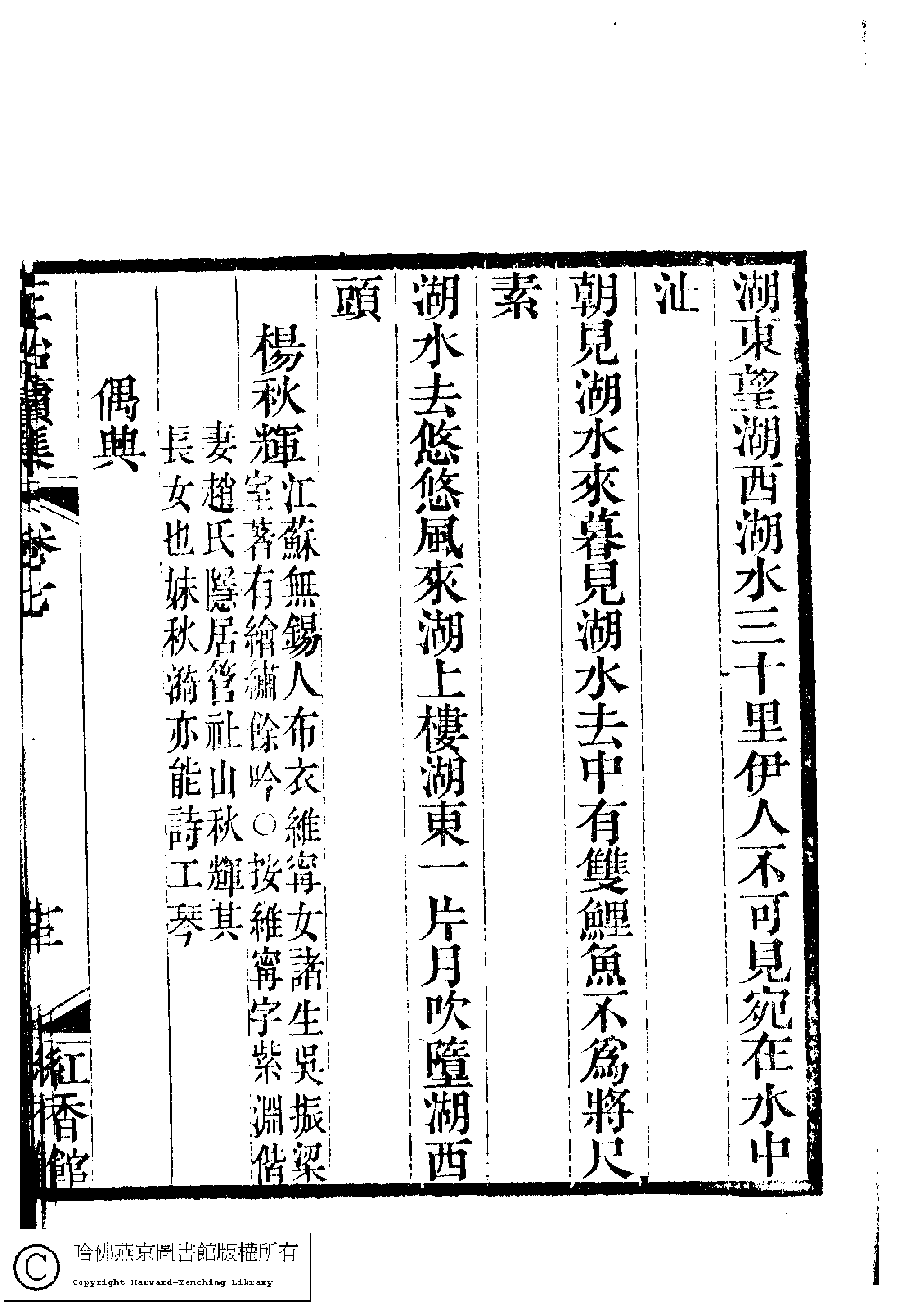 湖東望湖西湖水三十里伊人不可見宛在水中
沚
朝見湖水來暮見湖水去中有雙鯉魚不為將尺
素
湖水去悠悠風來湖上樓湖東一片月吹墮湖西
頭
楊秋輝
江蘇無錫人布衣維甯女諸生吳振梁
室著有繪繡餘吟○按維甯字紫淵偕
妻趙氏隱居管社山秋輝其
長女也妹秋漪亦能詩工琴
偶興
正始續集
卷七
紅香館
哈佛燕京圖書館版權所有
Copyright Harvard-Yenching Library